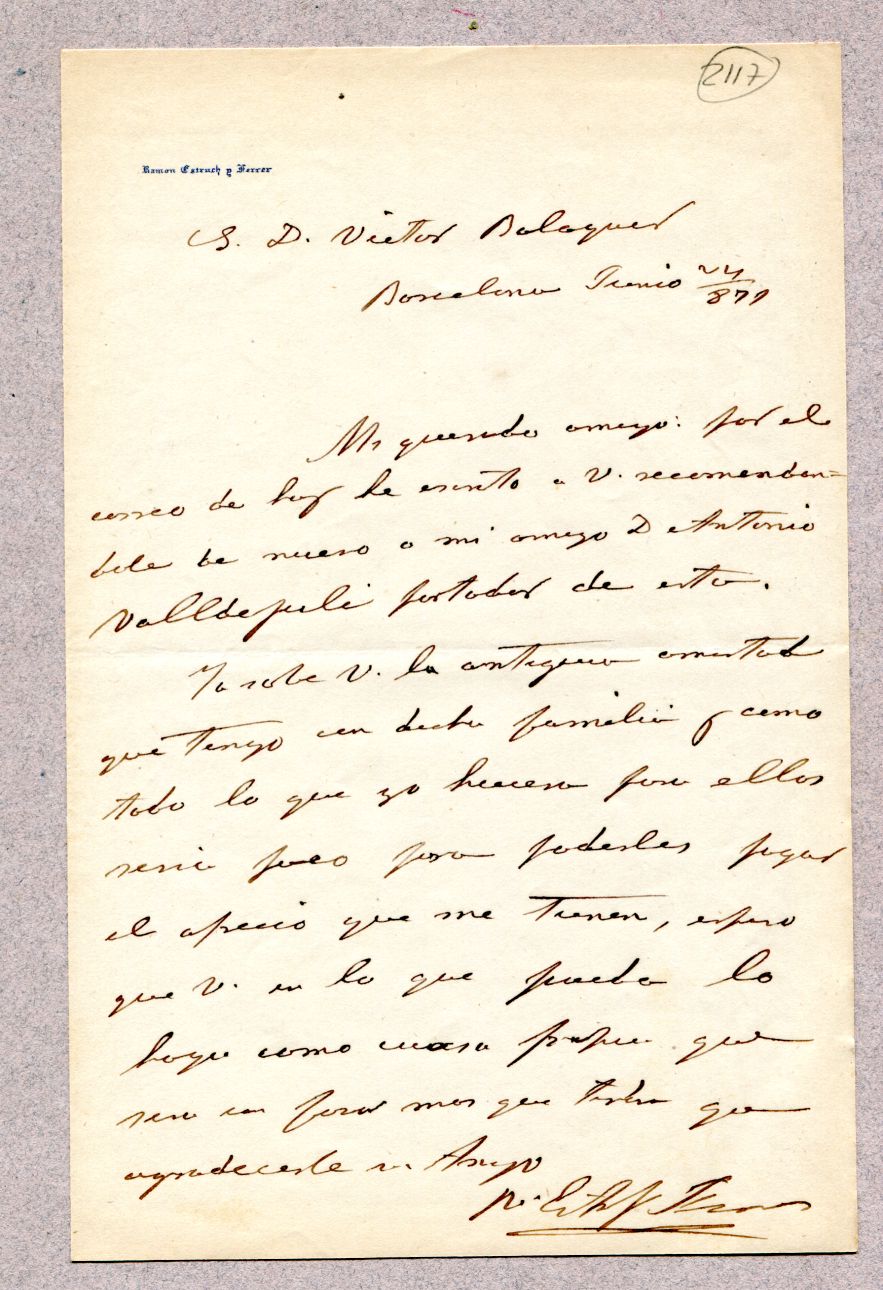 2117
Ramon Estruch y Ferrer
S. D. Victor Balaguer
Barcelona Junio 24/871
Mi querido amigo: por el
correo de hoy he escrito a V. recomendan=
dole de nuevo a mi amigo D Antonio
Valldejuli portador de esta.
Ya sabe V. la antigua amistad
que tengo con dicha familia y como
todo lo que yo hiciera por ellos
seria poco para poderles pagar
el aprecio que me tienen, espero
que V. en lo que pueda lo
haga como cuasa propia que
sera un favor mas que tendra que
agradecerle su Amigo
Rn Estruch y Ferrer